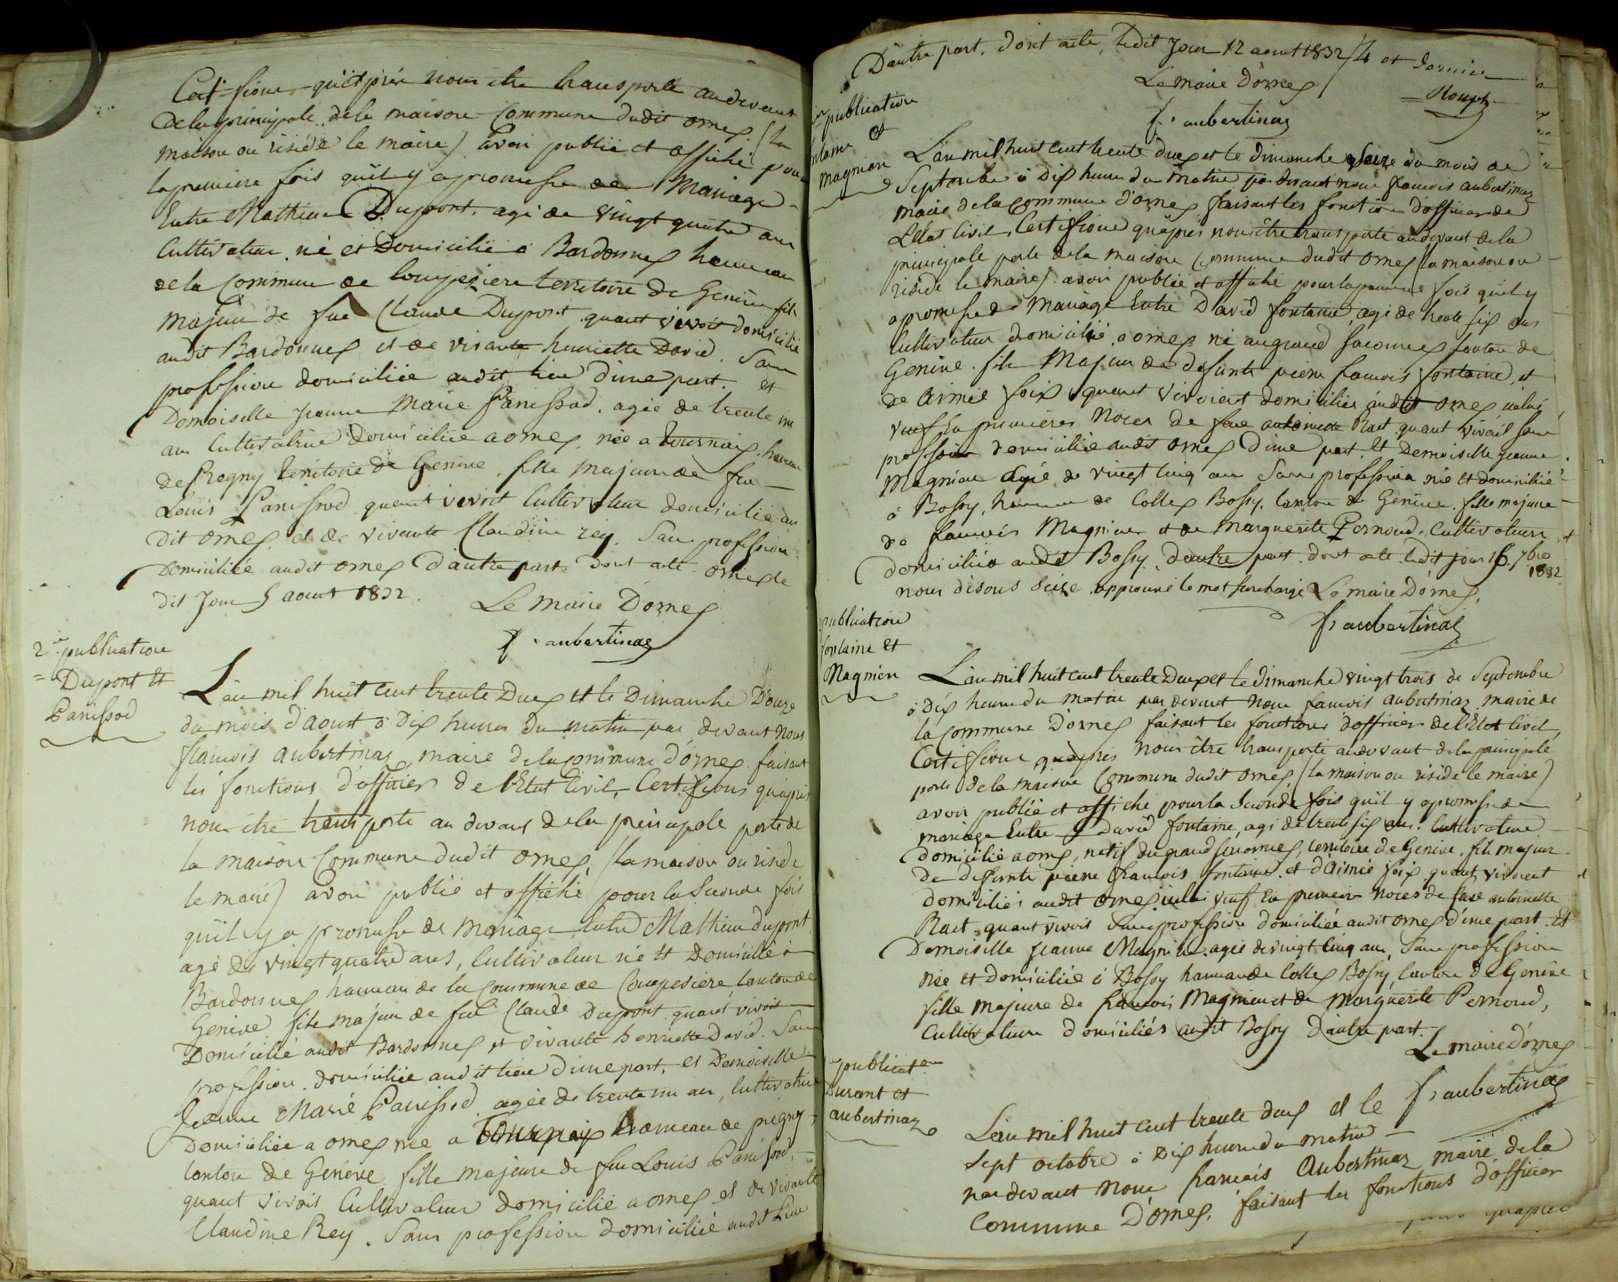 Certifions qu'après nous être transporté au devant
de la principale de la maison commune dudit ornex (la
maison ou réside le maire) avoir publié et affiché pour
la première fois qu'il y a promesse de Mariage
Entre Mathieu Dupont, agé de vingt quatre ans
Cultivateur né et Domicilié à Bardonnex hameau
de la Commune de Compesiere territoire de Genève fils
Majeur de feu Claude Dupont quant vivoit domicilié
audit Bardonnex et de vivante henriette David Sans
profession domiciliée audit lieu d'une part. et
Demoiselle jeanne Marie Panissod, agée de trente un
ans Cultivatrice domiciliée a ornex née a tournaix hameau
de Pregny territoire de Genève, fille majeure de feu
Louis Panissod quant vivoit Cultivateur domicilié au
dit ornex et de vivante Claudine rey Sans profession
Domiciliée audit ornex d'autre part. Dont acte ornex le
dit Jour 5 aout 1832. Le Maire D'ornex
f. aubertinaz
2e publication
Dupont et
Panissod
L'an mil huit cent trente Deux et le Dimanche Douze
du mois d'aout à Dix heures Du matin par devant Nous
françois aubertinaz maire de la commune d'ornex faisant
les fonctions d'officier de l'Etat Civil, Certifions qu'après
nous être transporté au devant de la principale porte de
la maison Commune dudit ornex, (la maison ou réside
le maire) avoir publié et affiché pour la Seconde fois
qu'il y a promesse de Mariage Entre Mathieu dupont
agé de vingt quatre ans, Cultivateur né et Domicilié à
Bardonnex hameau de la Commune de Compesiere Canton de
Genève fils majeur de feu Claude Dupont, quant vivoit
Domicilié audit Bardonnex et vivante henriette David Sans
profession, domiciliée audit lieu d'une part, et Demoiselle
Jeanne Marie Panissod agée de trente un an, Cultivatrice
Domiciliée a ornex née a Tournaix hameau de pregny
Canton de Genève fille majeure de feu Louis Panissod,
quant vivoit Cultivateur domicilié a ornex et de vivante
Claudine Rey. Sans profession domiciliée audit Lieu
D'autre part, dont acte, Ledit Jour 12 aout 1832 / 4 et dernier
Le Maire D'ornex
f. aubertinaz
publication
et
Magnien
L'an mil huit cent trente Deux et le Dimanche Seize du mois de
Septembre à Dix heures du Matin par devant nous francois aubertinaz
Maire de la Commune d'ornex faisant les fonctions d'officier de
L'Etat Civil, Certifions qu'après nous être transporté au devant de la
principale porte de la maison Commune dudit ornex (la maison ou
réside le maire) avoir publié et affiché pour la premiere fois qu'il y
a promesse de Mariage Entre David fontaine, agé de trente six ans
Cultivateur domicilié a ornex né au grand saconnex canton de
Genève fils Majeur de défunts pierre francois fontaine, et
de Aimée foix quant vivoient domiciliés audit ornex icelui
veuf En premieres Noces de feue antoinette Ract quant vivoit sans
profession domiciliée audit ornex d'une part. Et Demoiselle Jeanne
Magnien agée de vingt cinq ans Sans profession née et domiciliée
à Bossy, hameau de Collex Bossy, Canton de Genève fille majeure
de francois Magnien et de Marguerite Pernoud. Cultivateurs
domiciliés audit Bossy, d'autre part. dont acte ledit Jour 16 7bre
1832
nous disons Seize. approuvé le mot Surchargé Le maire D'ornex,
f aubertinaz
publication
fontaine et
Magnien
L'an mil huit cent trente Deux et le Dimanche vingt trois de Septembre
à dix heures du Matin par devant Nous francois aubertinaz maire de
la commune D'ornex faisant les fonctions d'officier de l'Etat Civil,
Certifions qu'après nous être transporté au devant de la principale
porte de la maison Commune dudit ornex (la maison ou réside le maire)
avoir publié et affiché pour la Seconde fois qu'il y a promesse de
mariage Entre David fontaine, agé de trente six ans. Cultivateur
domicilié a ornex, natif du grand saconnex, territoire de Genève. fils majeur
de défunts pierre francois fontaine et d'aimée foix quant vivoient
domiciliés audit ornex icelui veuf En premieres Noces de feue antoinette
Ract, quant vivoit Sans profession domiciliée audit ornex d'une part. Et
Demoiselle Jeanne Magnien agée de vingt Cinq ans, Sans profession
Née et domiciliée à Bossy hameau de Collex Bossy, Canton de Genève
fille majeure de francois Magnien et de Marguerite Pernoud,
Cultivateurs domiciliés audit Bossy D'autre part.
Le maire D'ornex
f aubertinaz
publication
Durant et
aubertinaz
L'an mil huit cent trente deux et le
Sept octobre à Dix heures du matin
par devant Nous francois Aubertinaz maire de la
Commune D'ornex, faisant les fonctions d'officier
qu'après